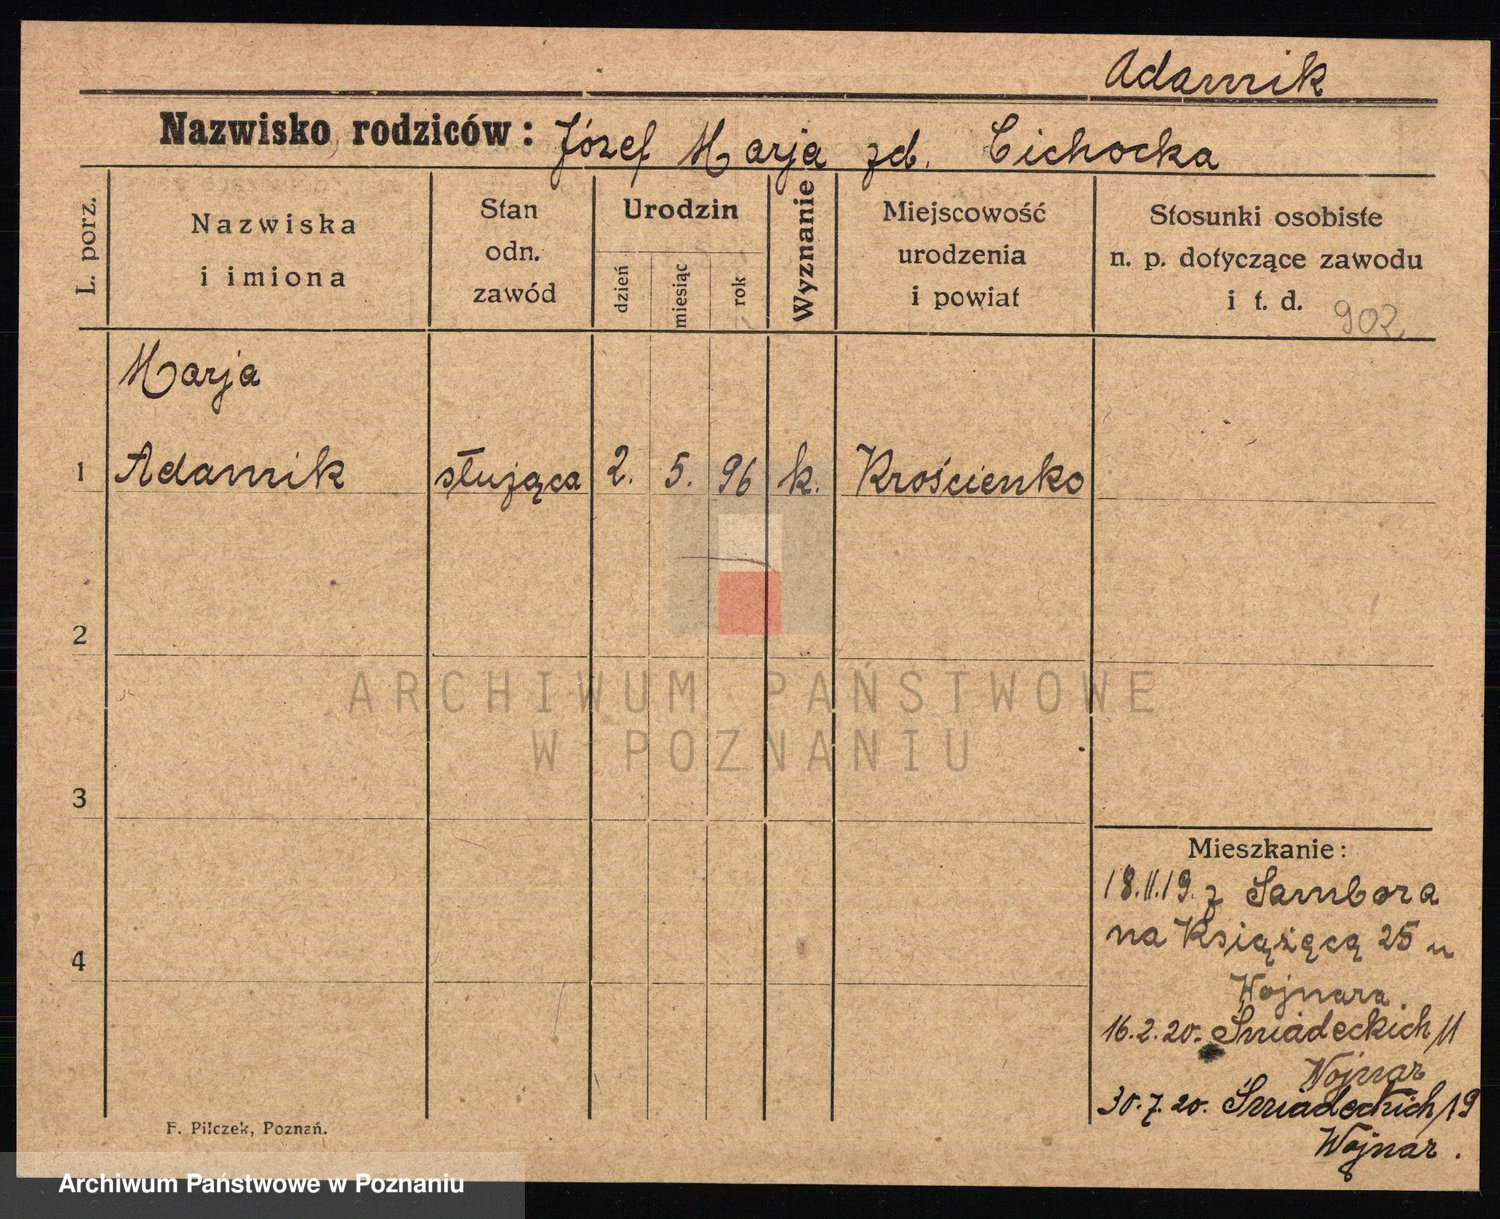 Adamik
Nazwisko rodziców: Józef Marja zd. Cichocka
L. porz.
Nazwiska
i imiona
Stan
odn.
zawód
Urodzin
dzień
miesiąc
rok
Wyznanie
Miejscowość
urodzenia
i powiat
Stosunki osobiste
n. p. dotyczące zawodu
i t. d.
902
Marja
1 Adamik służąca 2. 5. 96 k. Krościenko
2
3
4
ARCHIWUM PAŃSTWOWE
W POZNANIU
Mieszkanie:
18.11.19. z Sambora
na Książęcą 25 u
Wojnara.
16.2.20. Śniadeckich 11
Wojnar
30.7.20. Śniadeckich 19
Wojnar.
F. Pilczek, Poznań.
Archiwum Państwowe w Poznaniu